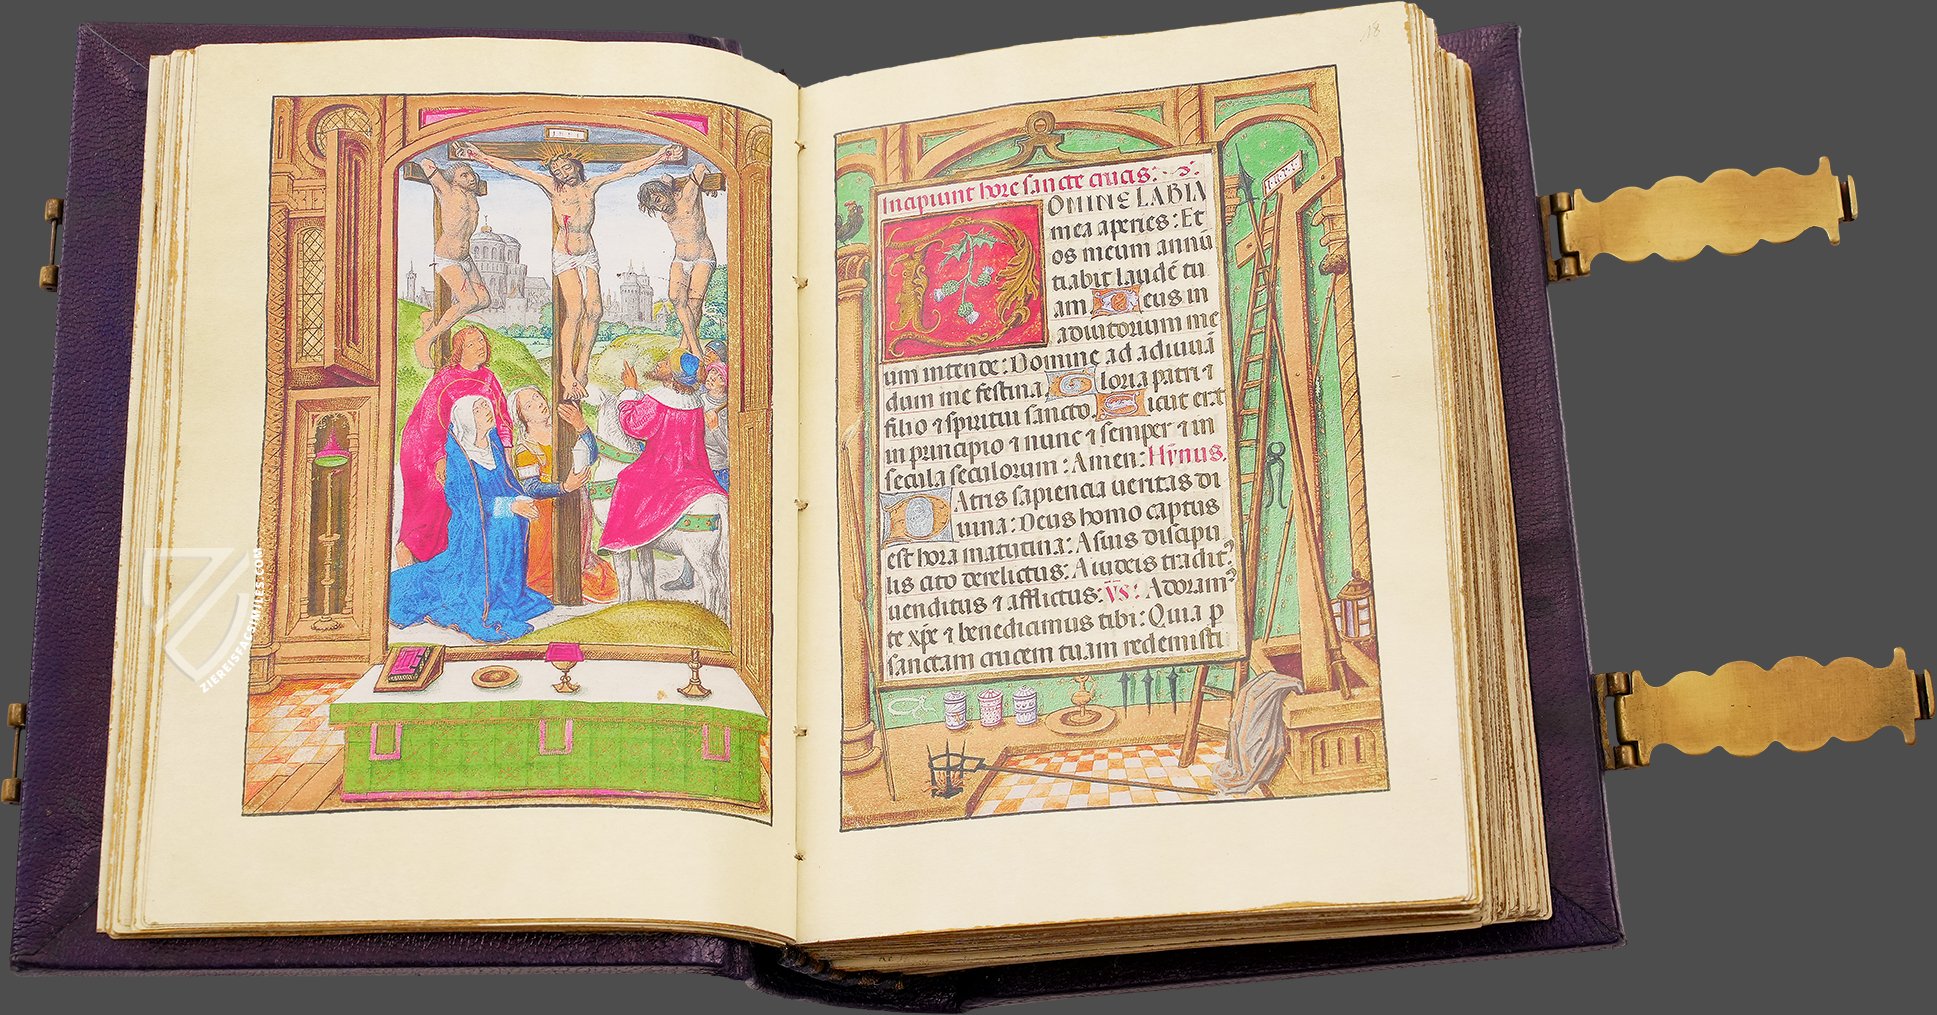 INRI
18
Incipiunt hore sancte crucis:
OMINE LABIA
mea aperies: Et
os meum annū
tiabit laudē tu
am Deus in
adiutorium me
um intende: Domine ad adiuuā
dum me festina. Gloria patri ⁊
filio ⁊ spiritui sancto. Sicut erat
in principio ⁊ nunc ⁊ semper ⁊ in
secula seculorum: Amen: Hÿnus.
PAtris sapiencia ueritas di
uina: Deus homo captus
est hora matutina: A suis discipu
lis cito derelictus: A iudeis tradit᷒
uenditus ⁊ afflictus: Vs: Adoram᷒
te xp̄e ⁊ benedicimus tibi: Quia p
sanctam crucem tuam redemisti
ZIEREISFACSIMILES.COM